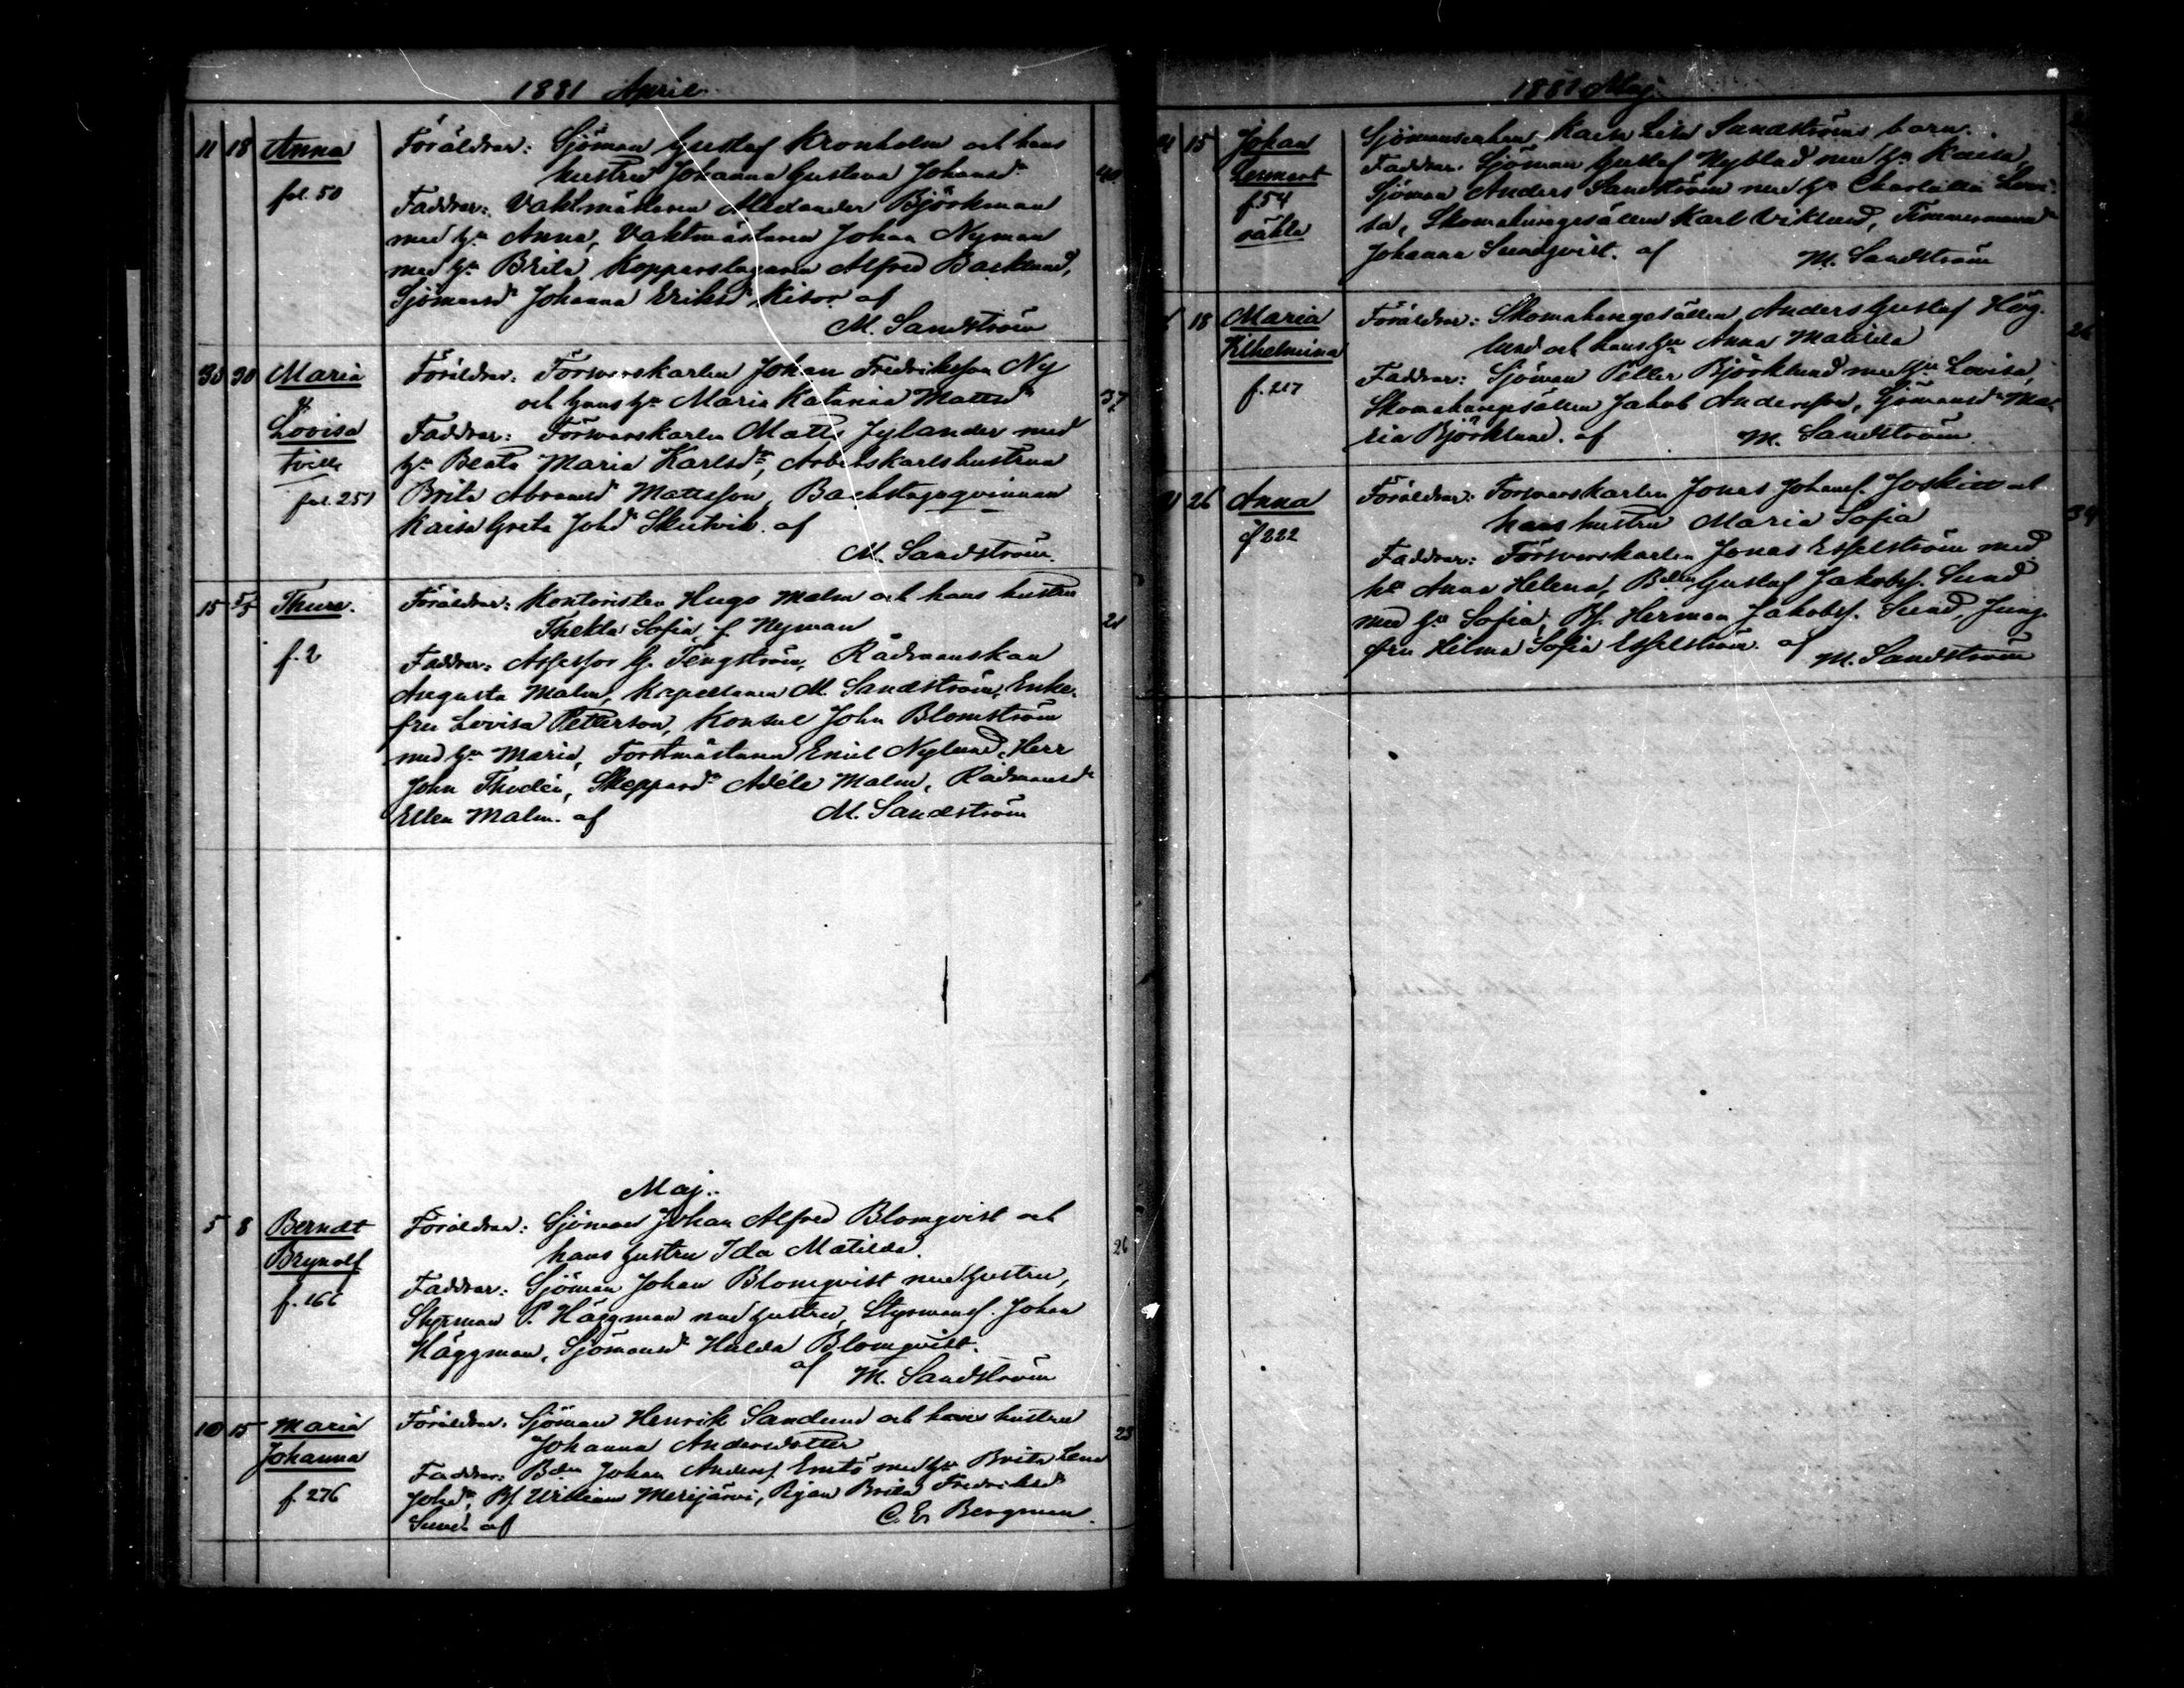 1881 April
11 18 Anna Föräldrar: Sjöman Gustaf Kronholm och hans
hustru Johanna Gustava Johansdr 40
fol. 50 Faddrar: Vaktmästaren Alexander Björkman
med hu Anna, Vaktmästaren Johan Nyman
med hu Brita, Kopparslagaren Alfred Backlund,
Sjömansdr Johanna Eriksdr Kisor af
M. Sandström
30 30 Maria Föräldrar: Förswarskarlen Johan Fredriksson Ny
och hans hu Maria Katarina Mattsdr 37
Lovisa Faddrar: Förswarskarlen Matts Jylander med
tvill. hu Beata Maria Karlsdr, Arbetskarlshustrun
fol. 251 Brita Abramsdr Mattsson, Backstuguqvinnan
Kaisa Greta Johdr Skutvik. af
M. Sandström.
15 5/5 Thure. Föräldrar: Kontoristen Hugo Malm och hans hustru
Thekla Sofia, f. Nyman 21
f. 2 Faddrar: Assessor G. Tengström, Rådmanskan
Augusta Malm, Kapellanen M. Sandström, Enke-
fru Lovisa Petterson, Konsul John Blomström
med hu Maria, Forstmästaren Emil Nylund, Herr
John Thodén, Skeppardr Adéle Malm, Rådmansdr
Ellen Malm. af M. Sandström
Maj.
5 8 Berndt Föräldrar: Sjöman Johan Alfred Blomqvist och
Brynolf hans hustru Ida Matilda. 26
f. 166 Faddrar: Sjöman Johan Blomqvist med hustru,
Styrman P. Häggman med hustru, Styrmans. Johan
Häggman, Sjömansdr Hulda Blomqvist.
af M. Sandström
10 15 Maria Föräldrar: Sjöman Henrik Sandlund och hans hustru
Johanna Johanna Andersdotter 23
Faddrar: Bdn Johan Anders. Emtö med hu Brita Lena
f. 276 Johsdr, Bs. William Merijärvi, Pigan Brita Fredriksdr
Sund. af C. E. Bergman.
1881 Maj.
15 Johan Sjömansenkan Kaisa Lisa Sandströms barn.
Lennart Faddrar: Sjöman Gustaf Nyblad med hu Kaisa,
f. 54 Sjöman Anders Sandström med hu Charlotta Lovi-
oäkta sa, Skomakaregesällen Karl Viklund, Timmermansdr
Johanna Sundqvist. af M. Sandström
18 Maria Föräldrar: Skomakargesällen Anders Gustaf Hög-
Vilhelmina lund och hans hu Anna Matilda 26
f. 217 Faddrar: Sjöman Petter Björklund med hu Lovisa,
Skomakargesällen Jakob Andersson, Sjömansdr Ma-
ria Björklund. af M. Sandström
26 Anna Föräldrar: Förswarskarlen Jonas Johans. Joskin och
hans hustru Maria Sofia 34
f 222 Faddrar: Förswarskarlen Jonas Esselström med
hu Anna Helena, Bdn Gustaf Jakobs. Sund
med hu Sofia, Bs. Herman Jakobs. Sund, Jung-
fru Hilma Sofia Esselström. af M. Sandström